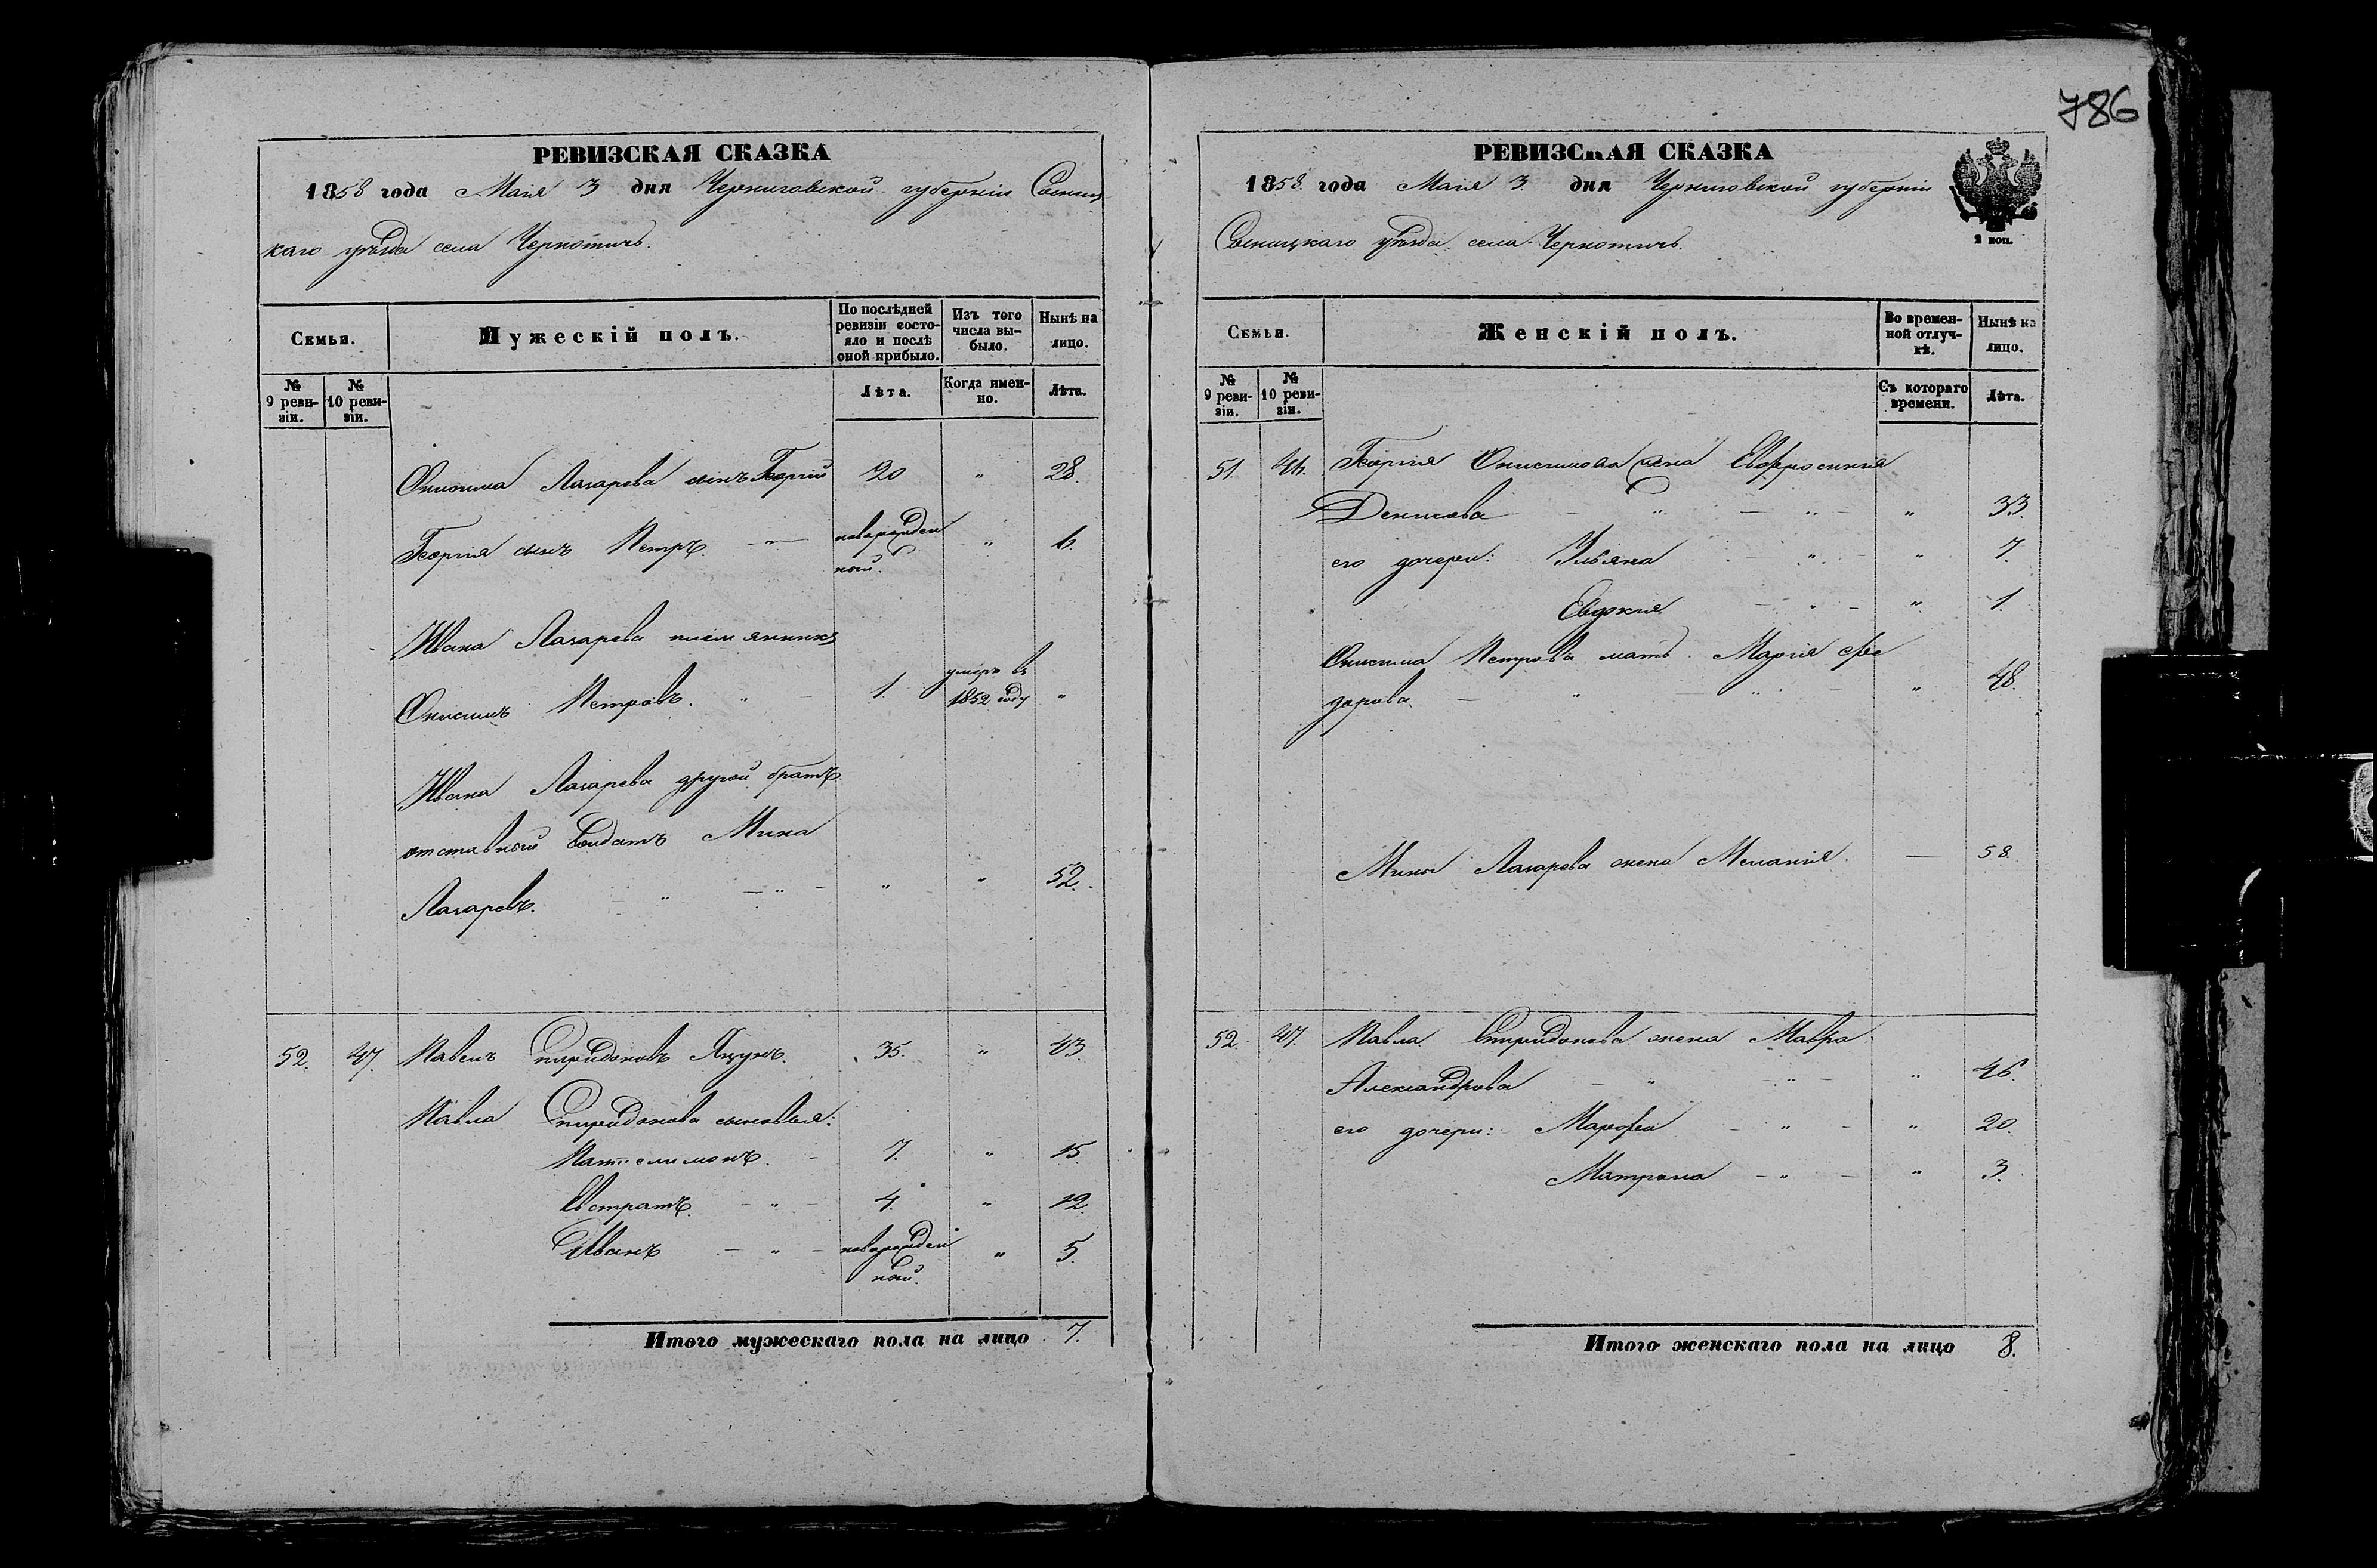 786
РЕВИЗСКАЯ СКАЗКА
1858 года Мая 3 дня Черниговской губерніи Сосниц
каго уѣзда села Чернотичъ.
Семьи.
Мужескій полъ.
По послѣдней ревизіи состояло и послѣ оной прибыло.
Изъ того числа выбыло.
Нынѣ на лицо.
№ 9 ревизіи.
№ 10 ревизіи.
Лѣта.
Когда именно.
Лѣта.
Онисима Лазарева сынъ Георгій 20 " 28.
Георгія сынъ Петръ — " — новорожден ный. " 6.
Ивана Лазарева племянникъ
Онисимъ Петровъ. " — 1. умеръ въ 1852 году "
Ивана Лазарева другой братъ
отставной солдатъ Мина
Лазаревъ. — " — " — " " 52.
52. 47. Павелъ Спиридоновъ Яцунъ. 35. " 43.
Павла Спиридонова сыновья:
Пантелимонъ. — 7. " 15.
Евстратъ. — " — 4. " 12.
Иванъ — " — новорожден ный. " 5.
Итого мужескаго пола на лицо 7.
РЕВИЗСКАЯ СКАЗКА
1858 года Мая 3. дня Черниговской губерніи
Сосницкаго уѣзда села Чернотичъ.
2 коп.
Семьи.
Женскій полъ.
Во временной отлучкѣ.
Нынѣ на лицо.
№ 9 ревизіи.
№ 10 ревизіи.
Съ котораго времени.
Лѣта.
51. 46. Георгія Онисимова жена Евфросинія
Денисова — " — " — " 33.
его дочери: Ульяна — " — " 7.
Евдокія — " — " 1.
Онисима Петрова мать Марія Ѳео
дорова — " — " — " 48.
Мины Лазарева жена Меланія. — 58.
52. 47. Павла Спиридонова жена Мавра
Александрова — " — " — " 46.
его дочери: Марфа — " — " 20.
Матрона — " — " 3.
Итого женскаго пола на лицо 8.